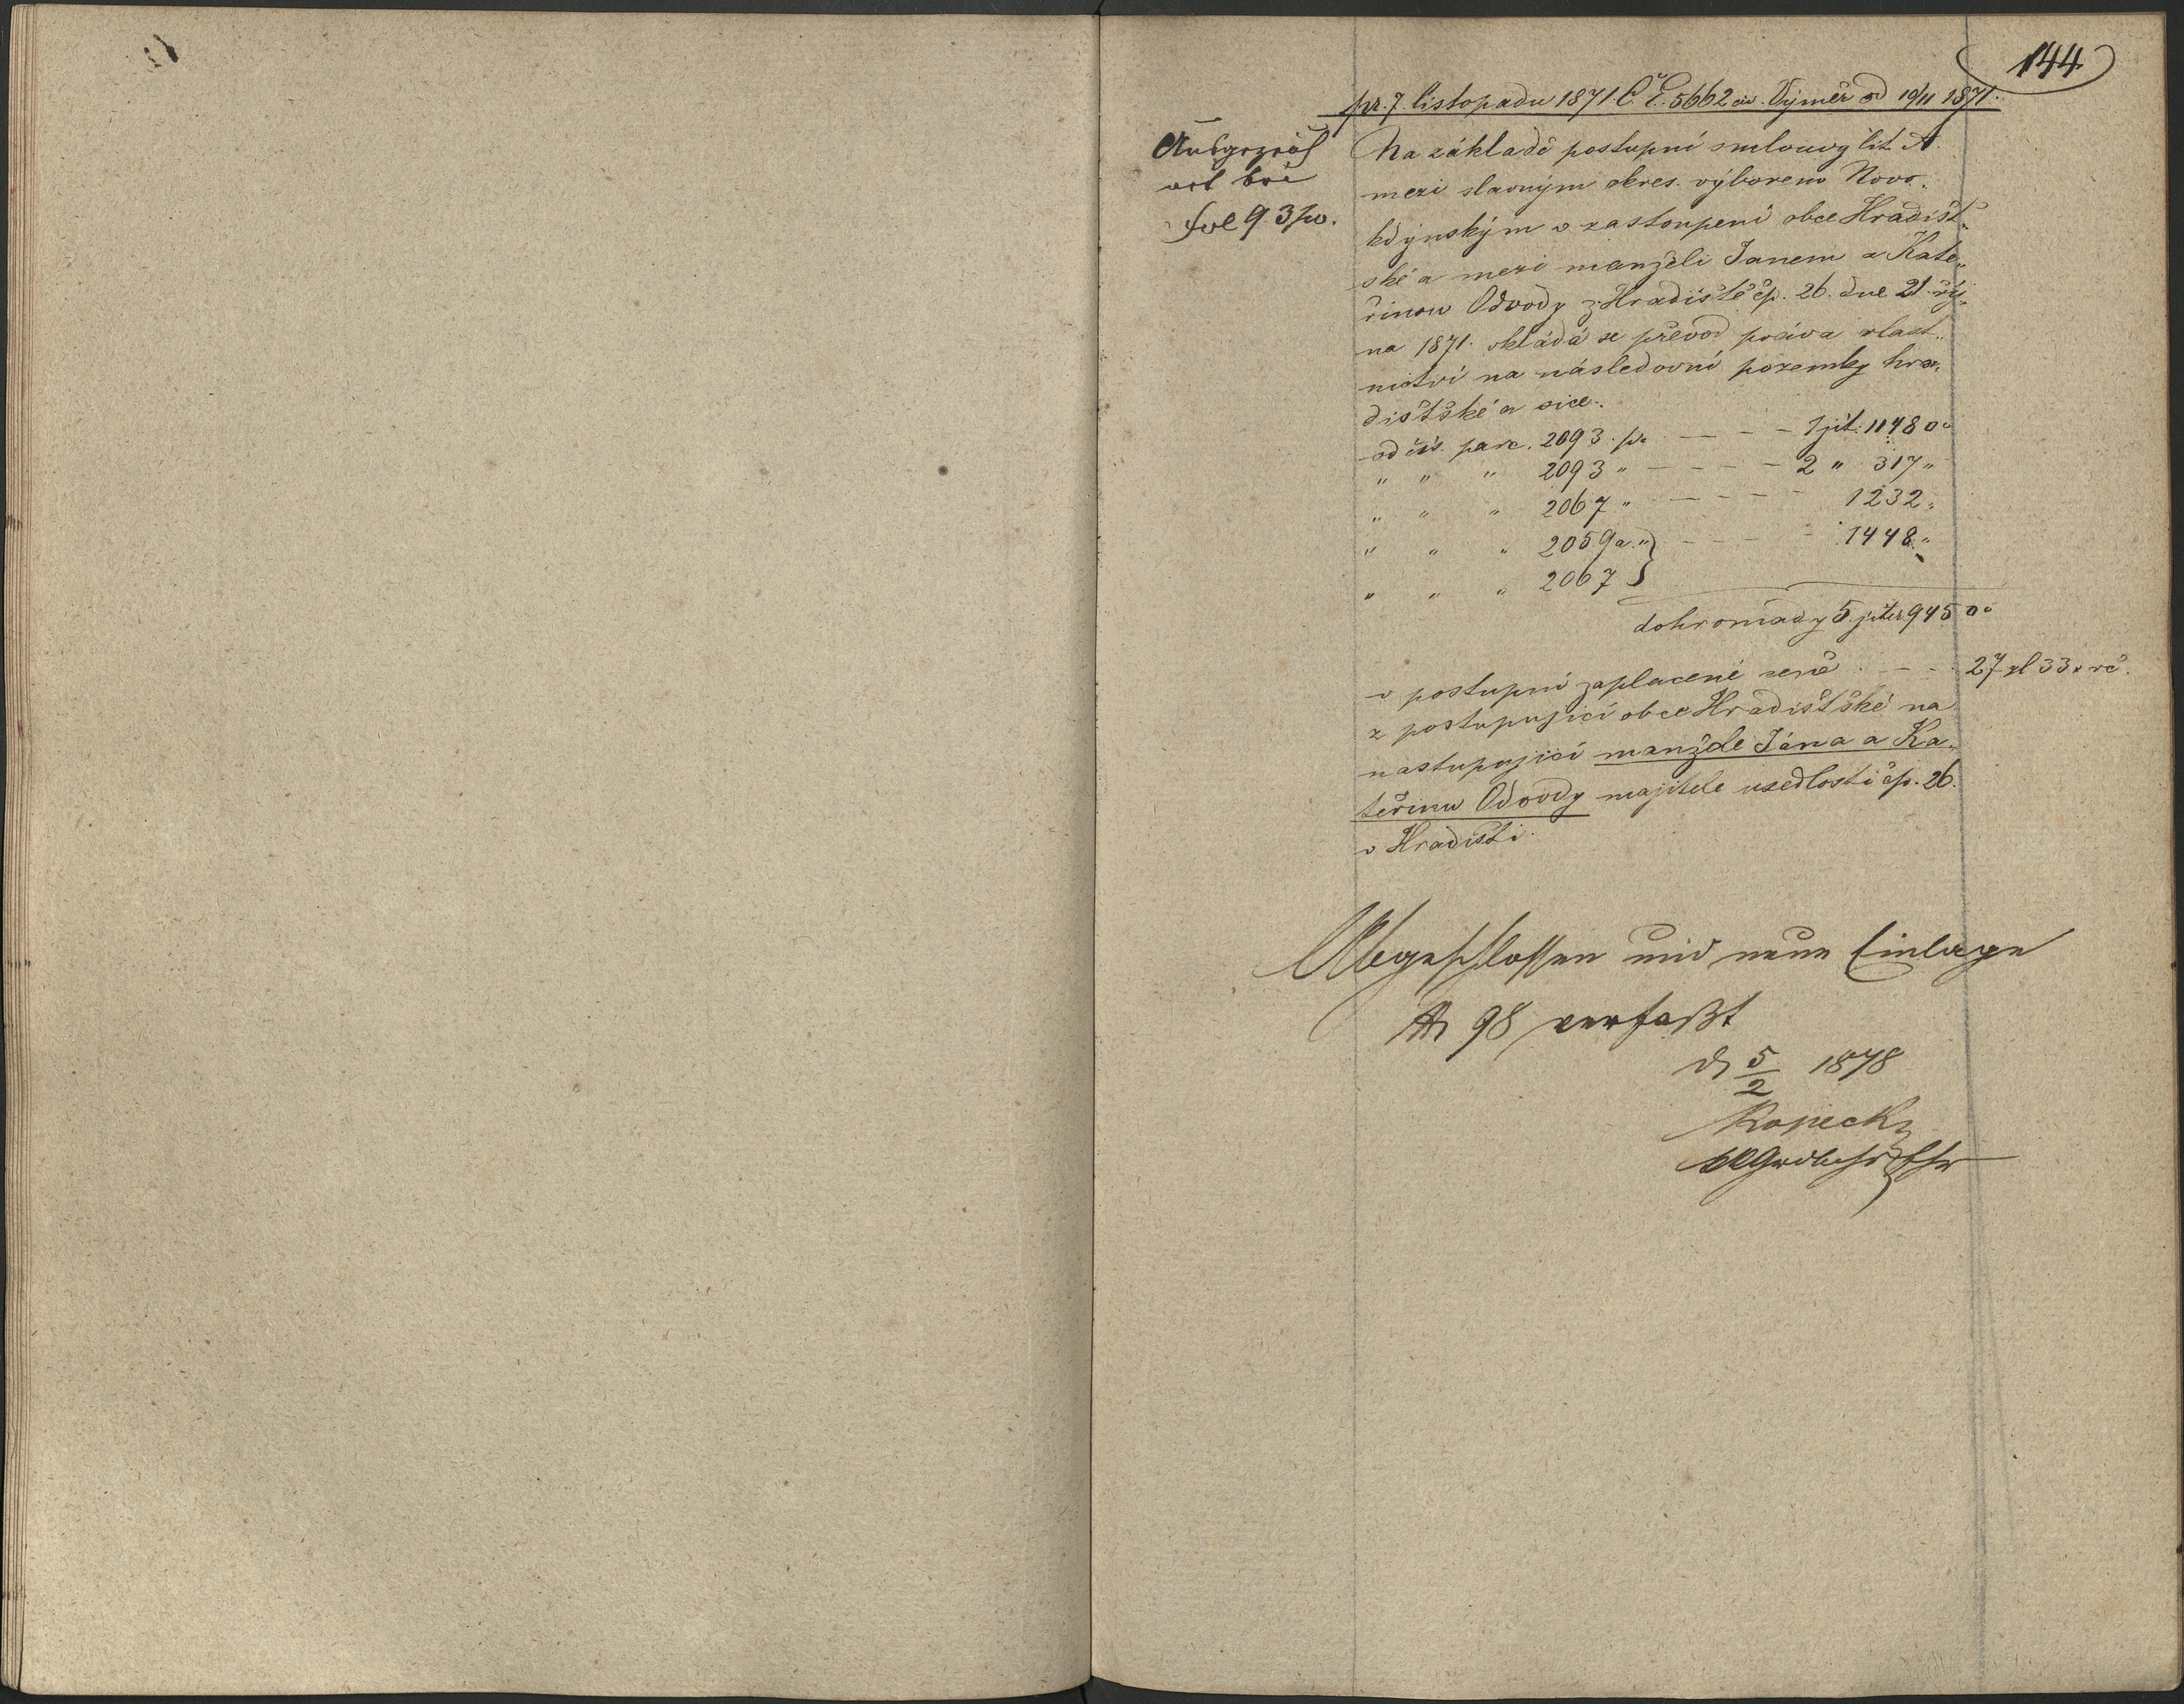 144
pr. 7. listopadu 1871. Č. E. 5662 civ. Výměr od 10/11 1871.
fol 93 po.
Na základě postupní smlouvy lit A.
mezi slavným okres. výborem Novo-
kdýnským v zastoupení obce Hradišť-
ské a mezi manželi Janem a Kate-
řinou Odvody z Hradiště čp. 26. dne 21 říj-
na 1871. vkládá se převod práva vlast-
nictví na následovní pozemky hra-
dištšké a sice:
od čís. parc. 2093 pr. — — — 1 jit. 1148 □°
" " " 2093 " — — — — 2 " 317 "
" " " 2067 " — — — — 1232 "
" " " 2059a " } — — — — 1448 "
" " " 2067 }
dohromady 5 jiter 945 □°
v postupní zaplacené ceně — — 27 zl 33 x rč.
z postupující obce Hradištšké na
nastupující manžele Jana a Ka-
teřinu Odvody majitele usedlosti čp. 26.
v Hradišti.
Abgeschlossen und neue Einlage
N 98 verfaßt
d 5/2 1878
Kopecky